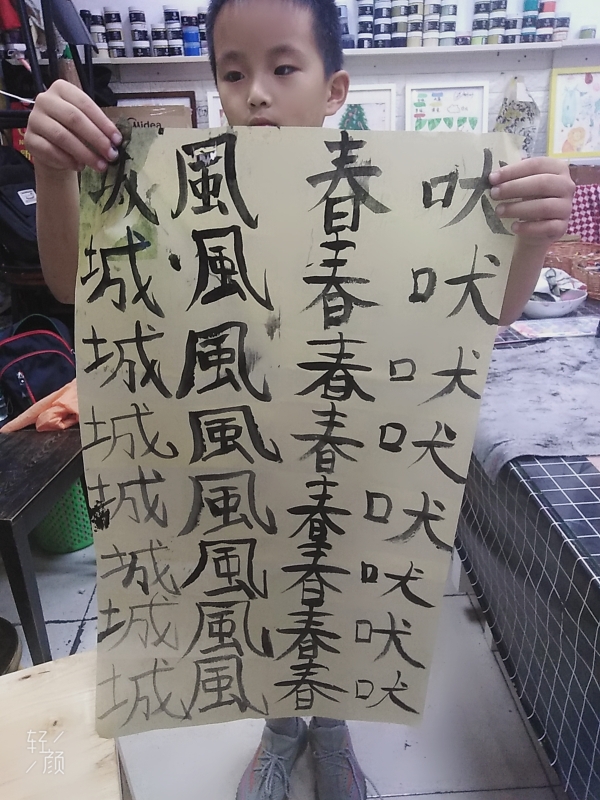 吠吠吠吠吠吠吠吠
春春春春春春春春
風風風風風風風風
城城城城城城城城
Midea
轻颜